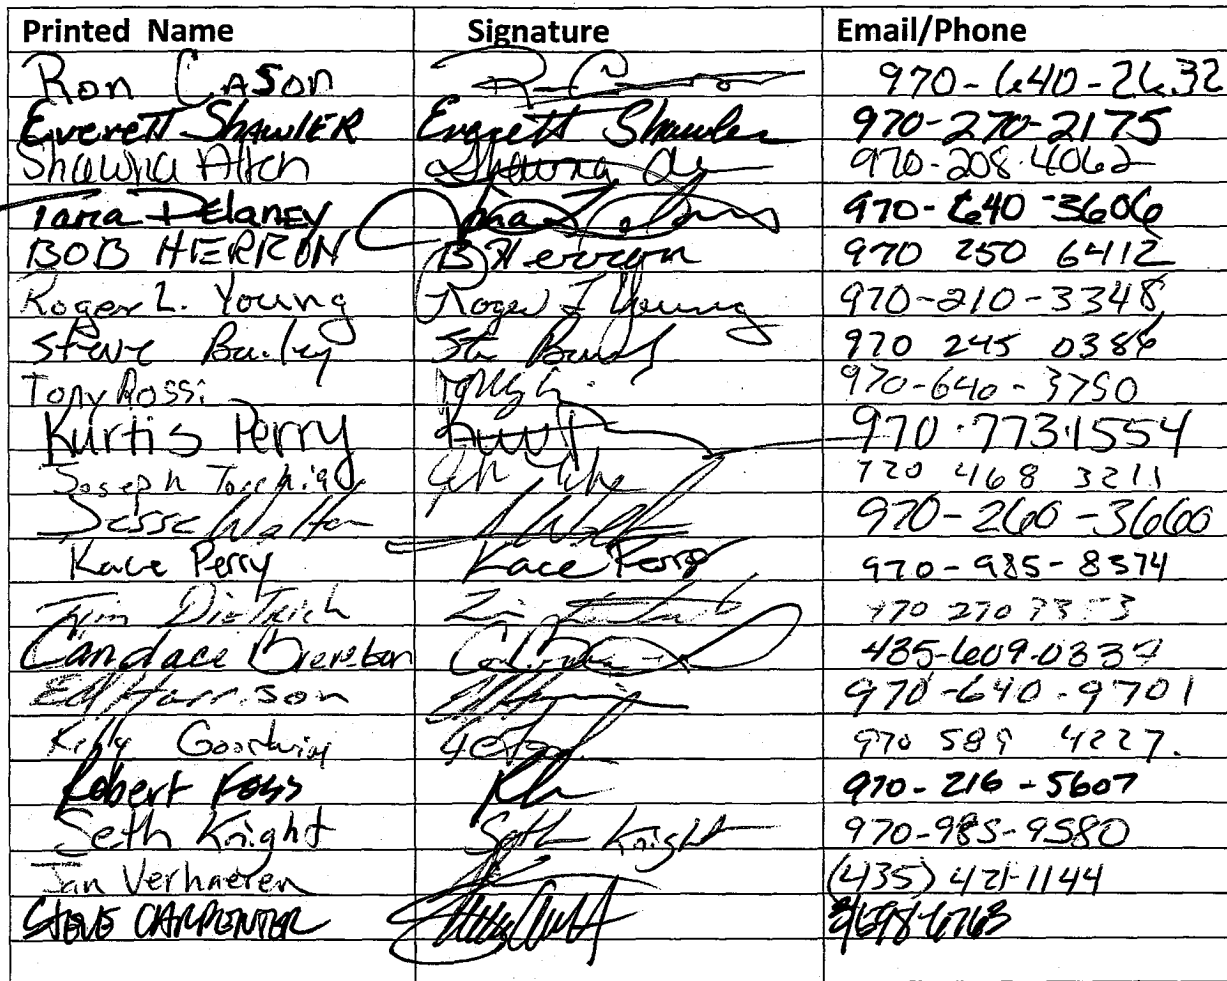 Printed Name Signature Email/Phone
Ron Cason 970-640-2632
Everett Shawler Everett Shawler 970-270-2175
Shawna Shawna 970-208-4062
Tana Delaney 970-640-3606
BOB HERRON B Herron 970 250 6412
Roger L. Young Roger L Young 970-210-3348
Steve Bailey 970 245 0386
Tony Rossi 970-640-3750
Kurtis Perry 970.773.1554
Joseph 720 468 3211
Jesse Walton 970-260-3660
Kace Perry Kace Perry 970-985-8374
Dietrich 970 270
Candace Brereton 435-609-0339
Ed Harrison 970-640-9701
Kelly Goodwin 970 589 4227.
Robert Foss 970-216-5607
Seth Knight Seth Knight 970-985-9580
Jan Verhaeren (435) 421-1144
STEVE CARPENTER